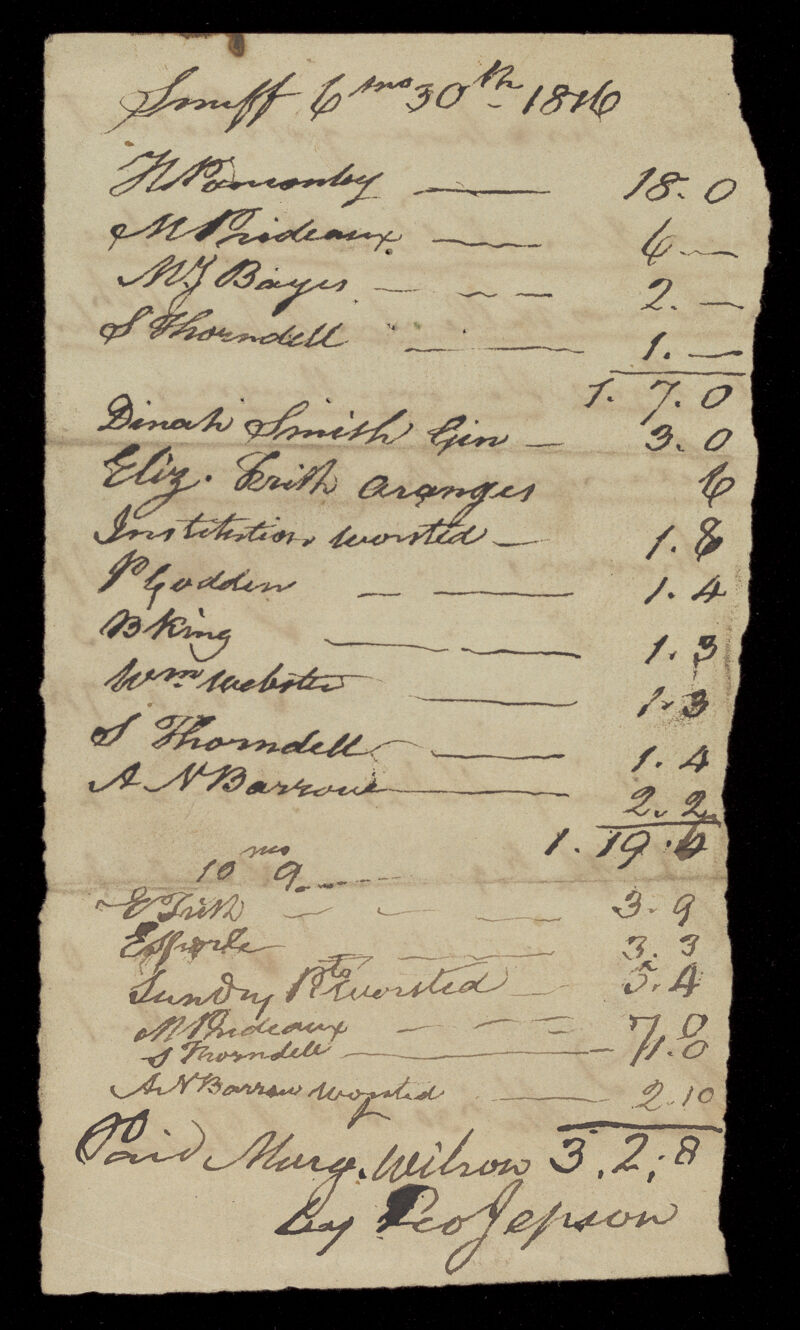 Snuff 6 mo 30th 1816
H Ponsonby — 18. 0
M Prideaux. — — 6 —
M.J Bayes — — — — 2. —
S Thorndell — — 1. —
1. 7. 0
Dinah Smith Gin — 3. 0
Eliz. Frith oranges 6
Institution worsted — 1. 8
P Godden — — 1. 4
B King — — — 1. 3
Wm Webster — 1. 3
S Thorndell — — 1. 4
A N Barrow — 2. 2
1. 19. 6
10 mo 9
E Frith — — — 3. 9
E — — 3. 3
Sundry Pts worsted — 5. 4
M Prideaux — — — 7. 0
S Thorndell — 1. 0
A N Barrow worsted — 2. 10
Paid Marg. Wilson 3. 2. 8
by Geo Jepson